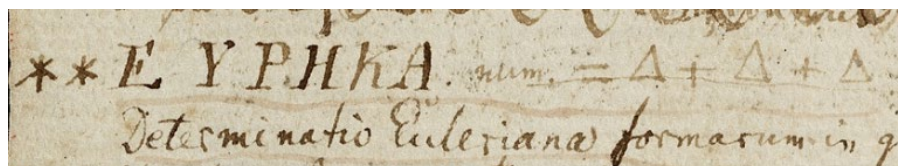 ** ΕΥΡΗΚΑ. num. = Δ + Δ + Δ
Determinatio Euleriana formarum in q